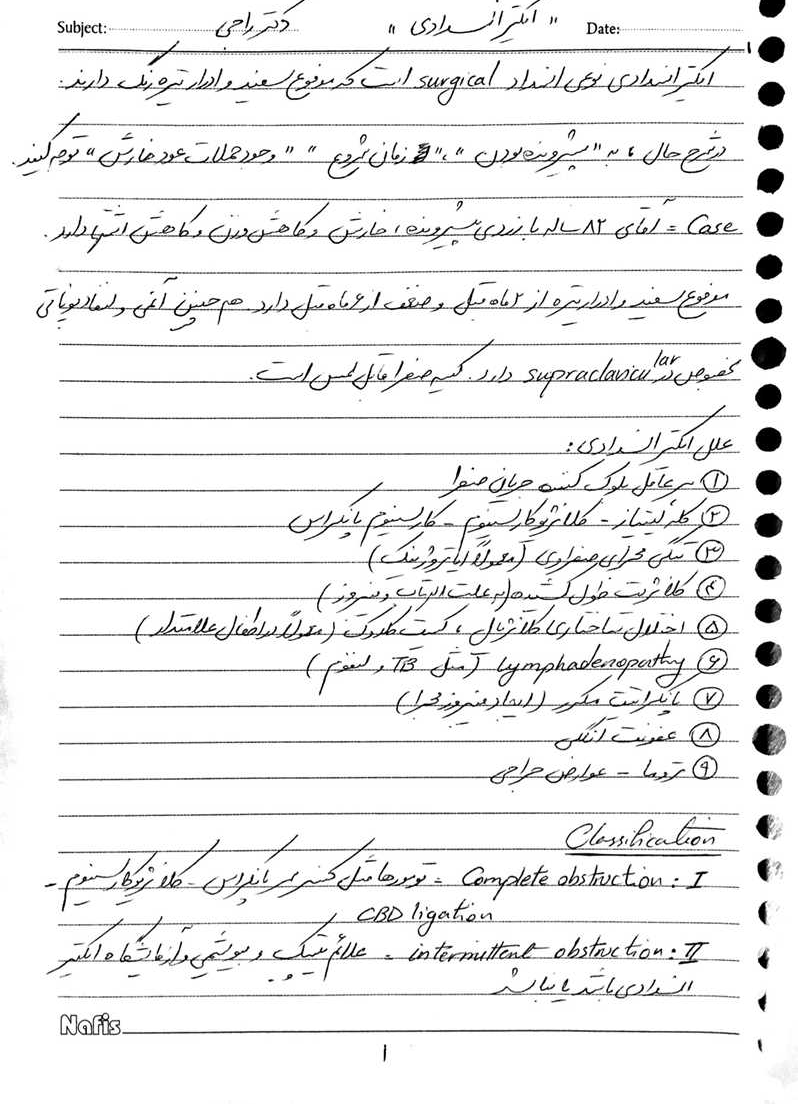 Subject: دکتر راجی " ایکتر انسدادی " Date:
۱
ایکتر انسدادی نوعی انسداد surgical است که مدفوع سفید و ادرار تیره رنگ دارند.
در شرح حال ، به "پیشرونده بودن" ، "زمان شروع" "وجود حملات عود خارش" توجه کنید.
Case = آقای ۸۲ ساله با زردی پیشرونده ، خارش و کاهش وزن و کاهش اشتها دارد.
مدفوع سفید و ادرار تیره از ۲ ماه قبل و ضعف از ۶ ماه قبل دارد. هم چنین آنمی و لنفادنوپاتی
بخصوص در supraclavicular دارد. کیسه صفرا قابل لمس است.
علل ایکتر انسدادی :
① هر عامل بلوک کننده جریان صفرا
② کله لیتیاز - کلانژیوکارسینوم - کارسینوم پانکراس
③ تنگی مجرای صفراوی (معمولاً ایاتروژنیک)
④ کلانژیت طول کشنده (به علت التهاب و فیبروز)
⑤ اختلال ساختاری کلانژیال ، کیست کلدوک (معمولاً در اطفال علامتدار)
⑥ lymphadenopathy (مثل TB و لنفوم)
⑦ پانکراتیت مکرر (ایجاد فیبروز مجرا)
⑧ عفونت انگلی
⑨ تروما - عوارض جراحی
Classification
I : Complete obstruction = تومورها مثل کنسر سر پانکراس - کلانژیوکارسینوم -
CBD ligation
II : intermittent obstruction = علائم تیپیک و بیوشیمی و آزمایشگاه ایکتر
انسدادی باشد یا نباشد
Nafis
۱